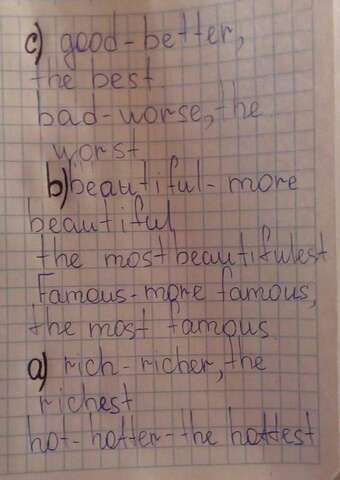 c) good-better,
the best
bad-worse, the
worst
b) beautiful-more
beautiful,
the most beautifulest
Famous-more famous,
the most famous
a) rich-richer, the
richest
hot-hotter-the hottest